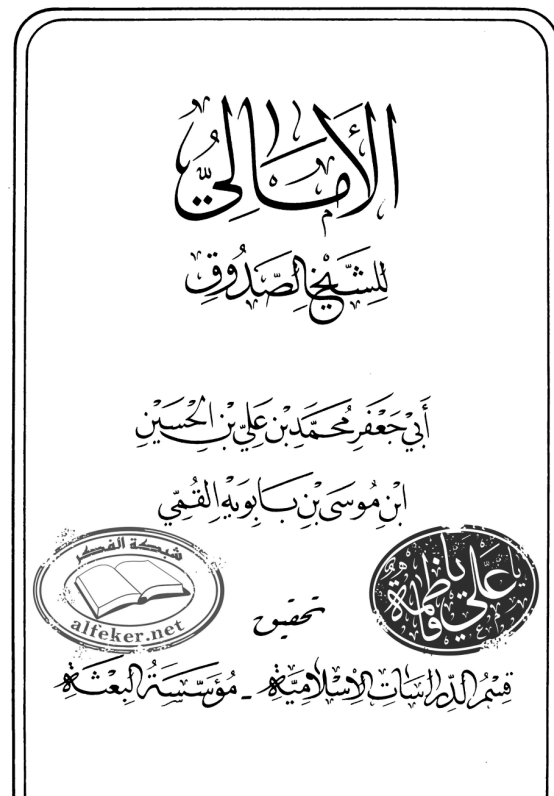 الأَمَالِيُّ
لِلشَّيْخِ الصَّدُوقِ
أَبِي جَعْفَرٍ مُحَمَّدِ بْنِ عَلِيِّ بْنِ الْحُسَيْنِ
ابْنِ مُوسَى بْنِ بَابَوَيْهِ الْقُمِّيِّ
شبكة الفكر
alfeker.net
يا علي يا فاطمة
تحقيق
قِسْمُ الدِّرَاسَاتِ الإِسْلَامِيَّةِ - مُؤَسَّسَةُ الْبِعْثَةِ